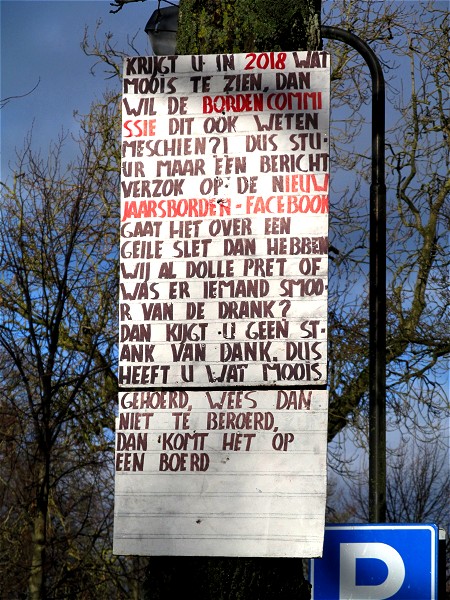 KRIJGT U IN 2018 WAT
MOOIS TE ZIEN, DAN
WIL DE BORDENCOMMI
SSIE DIT OOK WETEN
MESCHIEN?! DUS STU-
UR MAAR EEN BERICHT
VERZOK OP DE NIEUW
JAARSBORDEN-FACEBOOK
GAAT HET OVER EEN
GEILE SLET DAN HEBBEN
WIJ AL DOLLE PRET OF
WAS ER IEMAND SMOO-
R VAN DE DRANK?
DAN KIJGT U GEEN ST-
ANK VAN DANK. DUS
HEEFT U WAT MOOIS
GEHOERD, WEES DAN
NIET TE BEROERD,
DAN 'KOMT HET OP
EEN BOERD
P